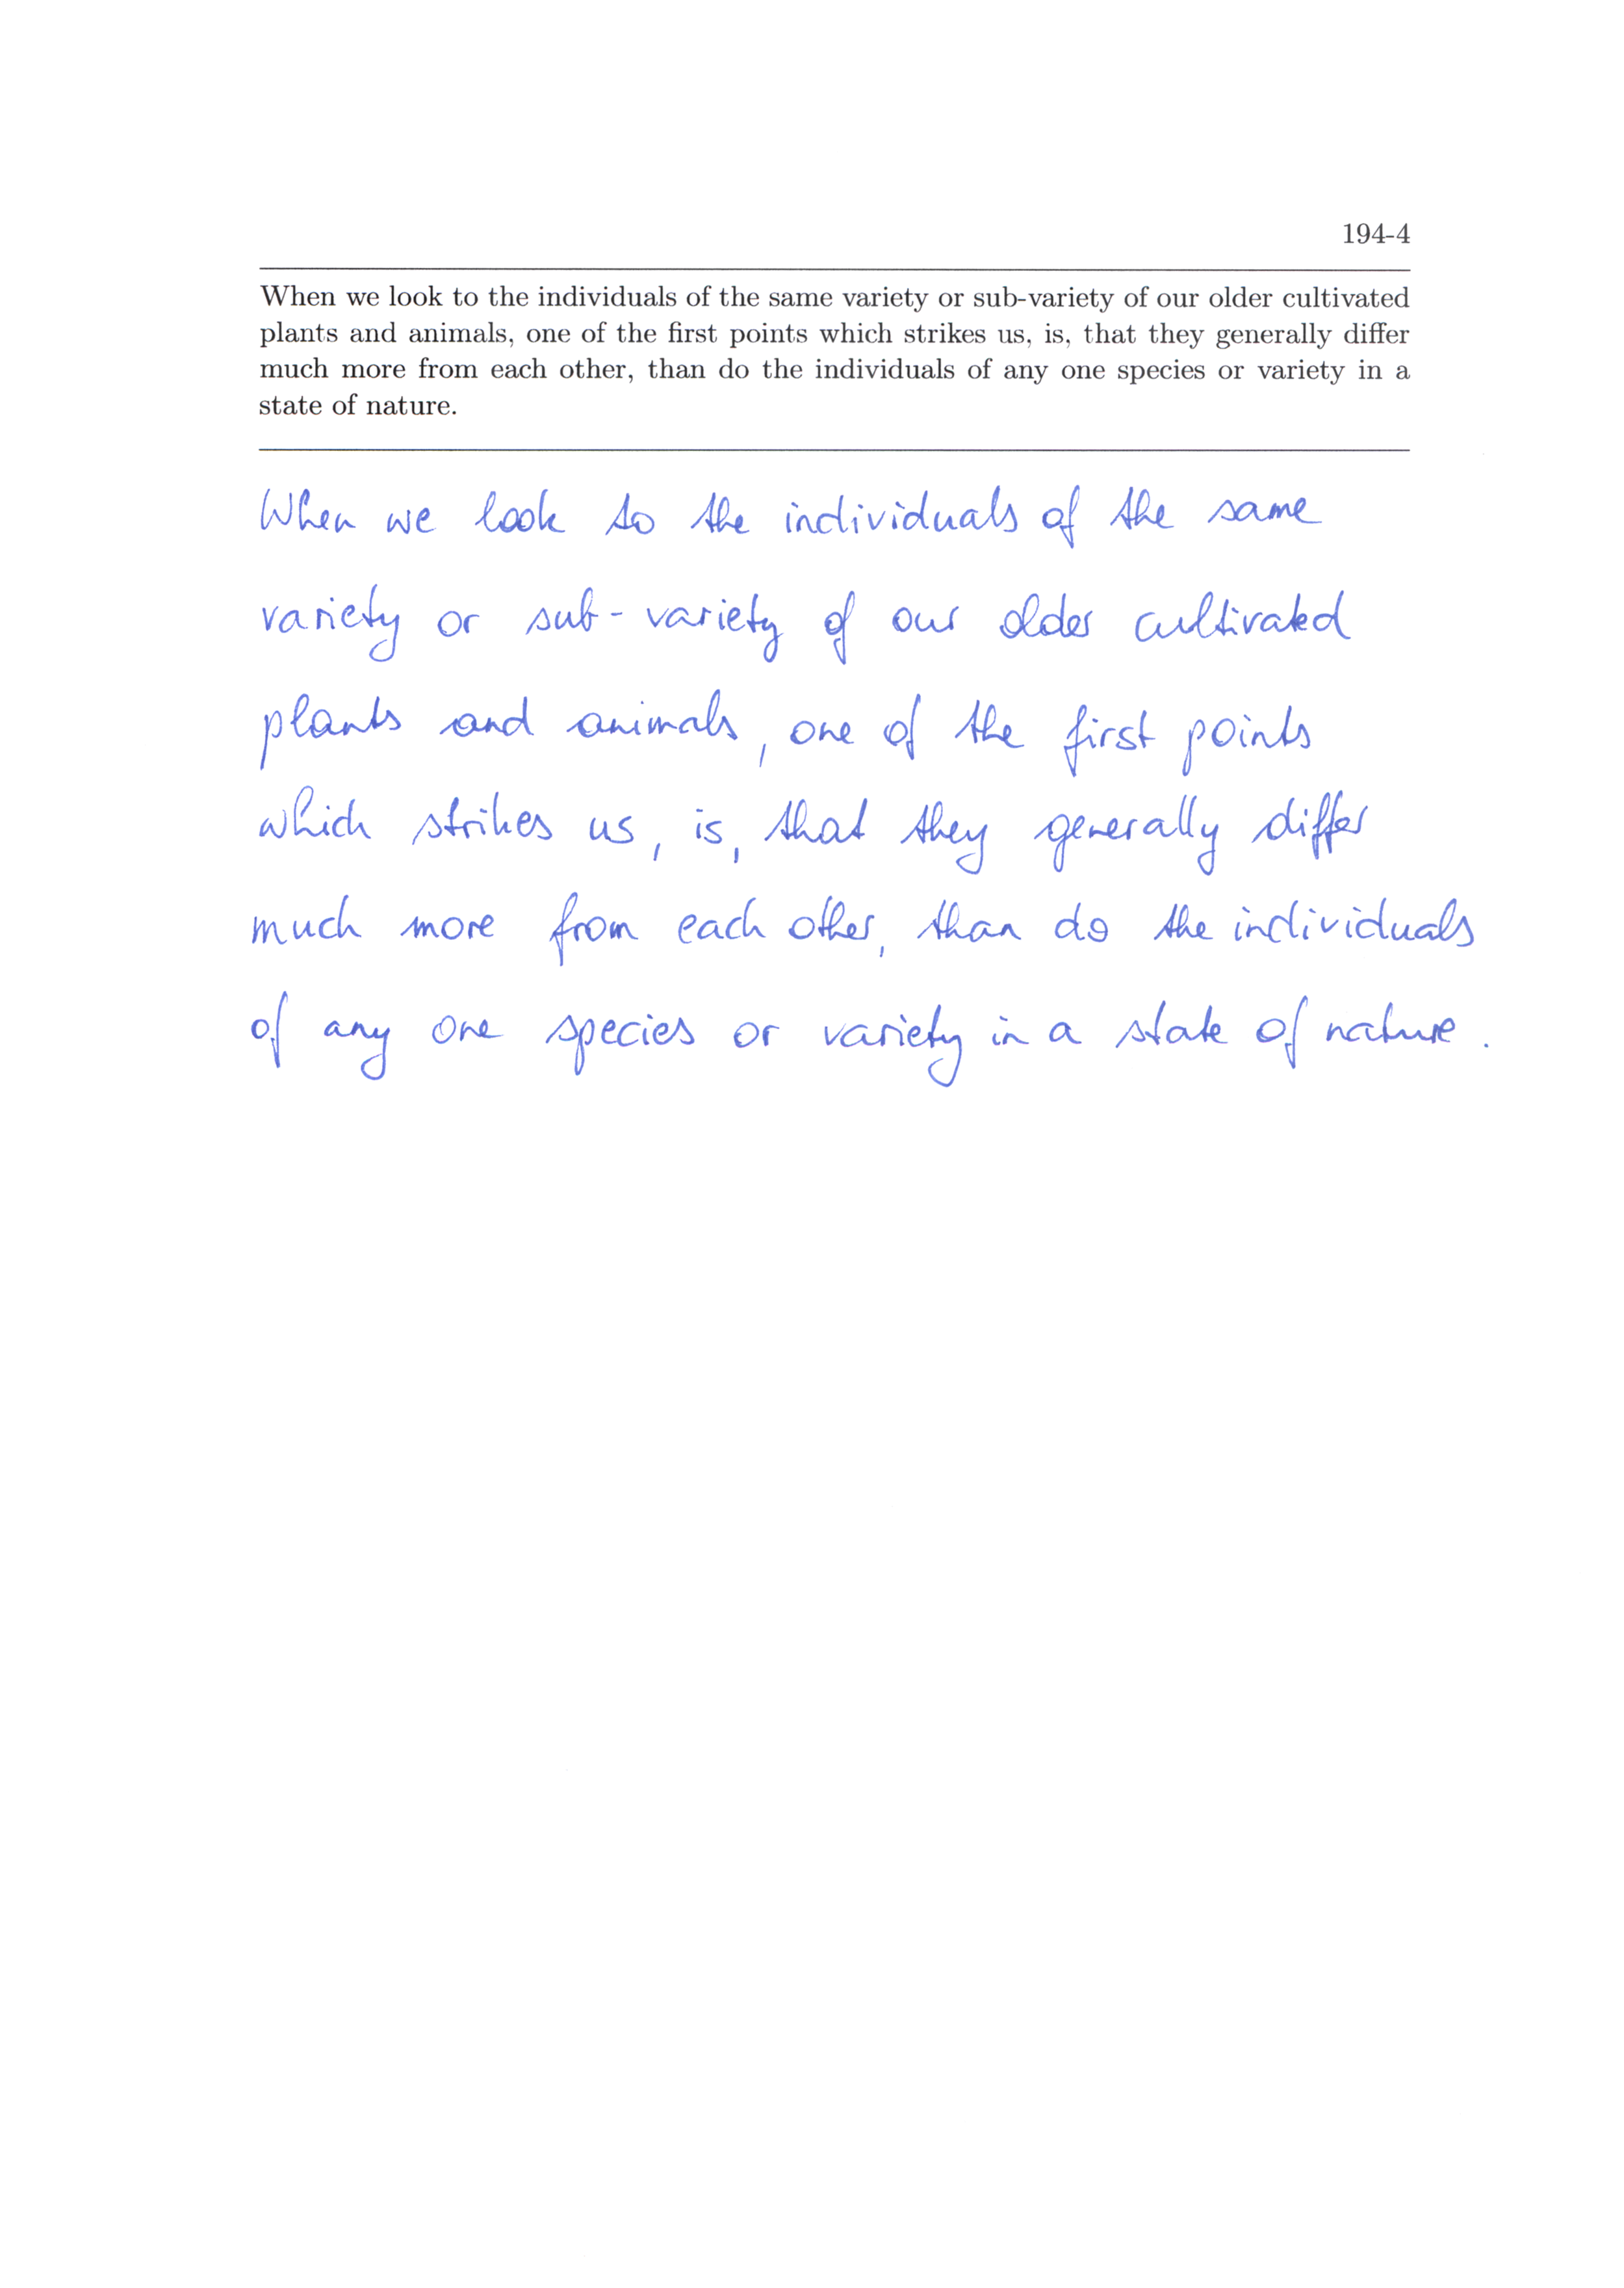 194-4
When we look to the individuals of the same variety or sub-variety of our older cultivated
plants and animals, one of the first points which strikes us, is, that they generally differ
much more from each other, than do the individuals of any one species or variety in a
state of nature.
When we look to the individuals of the same
variety or sub-variety of our older cultivated
plants and animals, one of the first points
which strikes us, is, that they generally differ
much more from each other, than do the individuals
of any one species or variety in a state of nature.